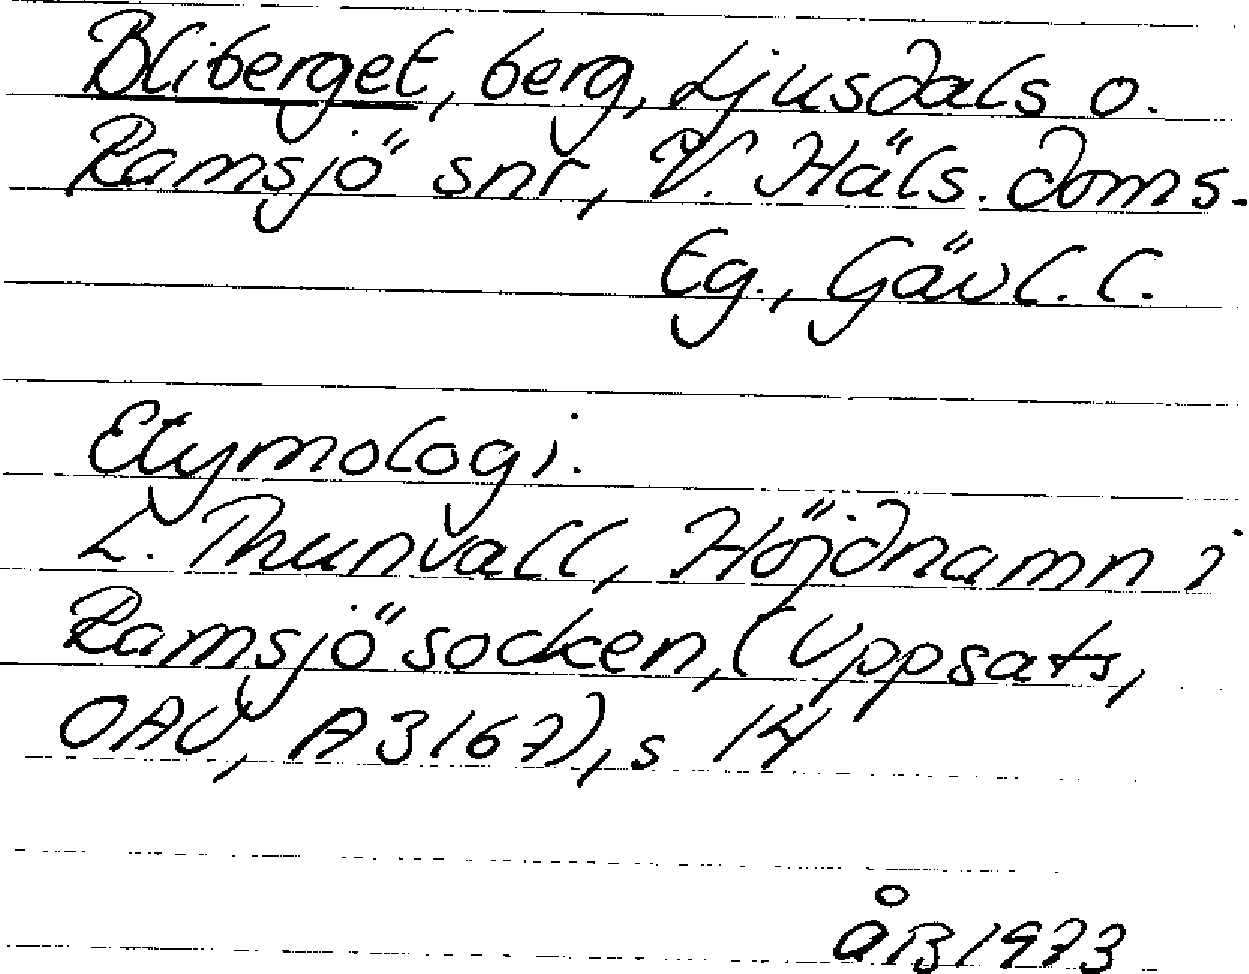 Bliberget, berg, Ljusdals o.
Ramsjö snr, V. Häls. doms.
Eg., Gävl. l.
Etymologi.
L. Thunvall, Höjdnamn i
Ramsjö socken, (Uppsats,
OAU, A 3167), s 14
ÅB 1973